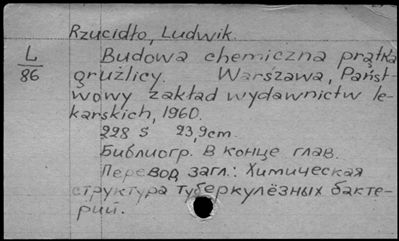 Rzucidło, Ludwik.
L Budowa chemiczna prątka
86 gruźlicy. Warszawa, Państ-
wowy zakład wydawnictw le-
karskich, 1960.
228 S 23,9cm.
Библиогр. в конце глав.
Перевод загл.: Химическая
структура туберкулёзных бакте-
рий.